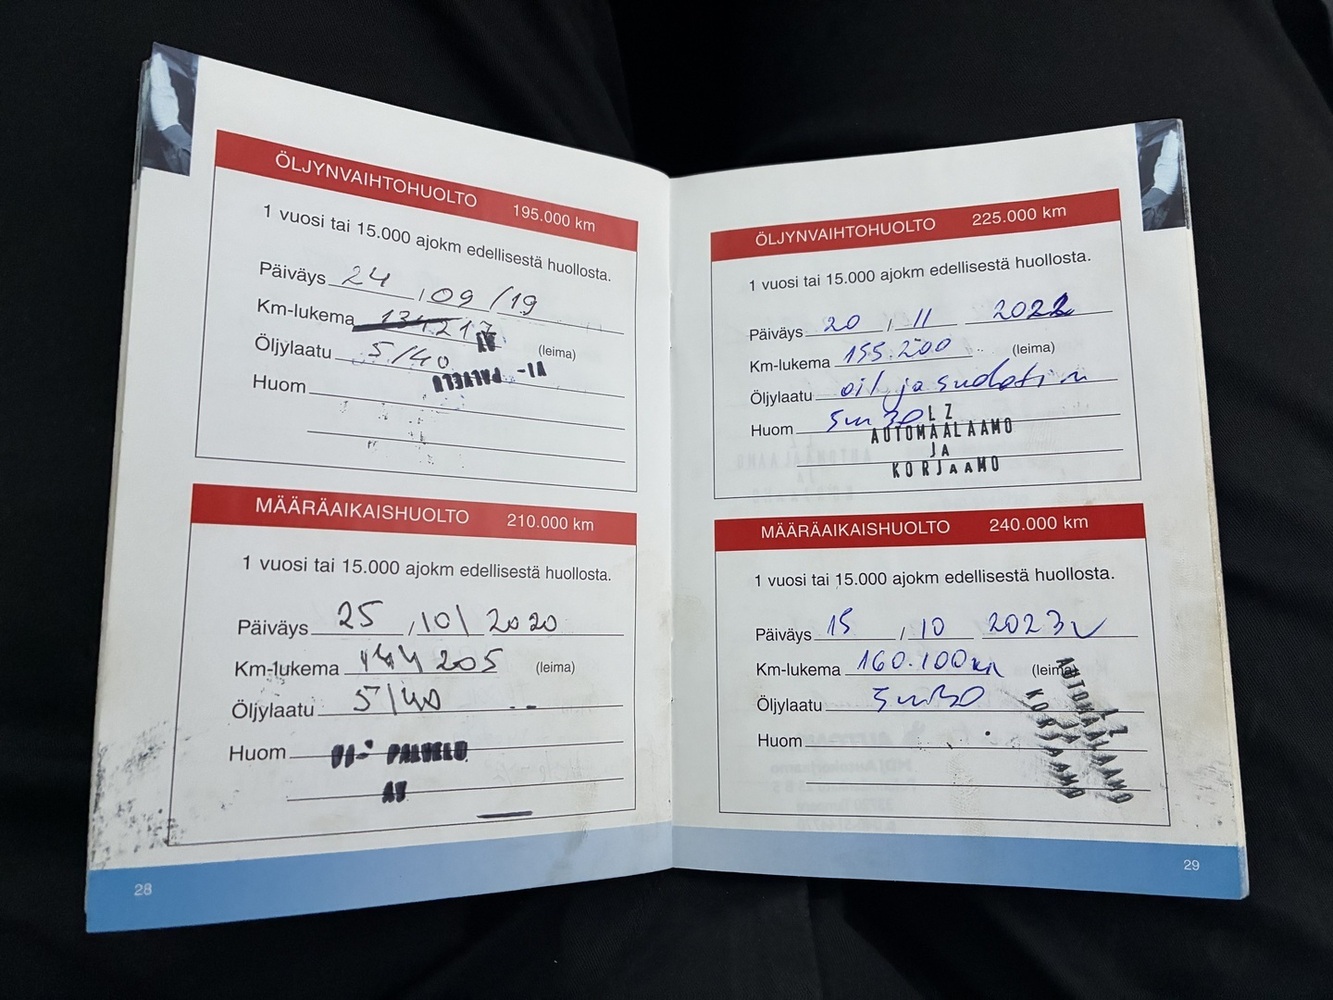 ÖLJYNVAIHTOHUOLTO 195.000 km
1 vuosi tai 15.000 ajokm edellisestä huollosta.
Päiväys 24 / 09 / 19
Km-lukema 134217
(leima)
Öljylaatu 5/40
VI- PALVELU
Huom
MÄÄRÄAIKAISHUOLTO 210.000 km
1 vuosi tai 15.000 ajokm edellisestä huollosta.
Päiväys 25 / 10 / 2020
Km-lukema 144 205 (leima)
Öljylaatu 5/40
Huom VI- PALVELU
28
ÖLJYNVAIHTOHUOLTO 225.000 km
1 vuosi tai 15.000 ajokm edellisestä huollosta.
Päiväys 20 / 11 2022
Km-lukema 155.200 (leima)
Öljylaatu oil ja sudatin
Huom 5w30
LZ
AUTOMAALAAMO
JA
KORJAAMO
MÄÄRÄAIKAISHUOLTO 240.000 km
1 vuosi tai 15.000 ajokm edellisestä huollosta.
Päiväys 15 / 10 2023
Km-lukema 160.100km (leima)
Öljylaatu 5w30
Huom
LZ
AUTOMAALAAMO
JA
KORJAAMO
29